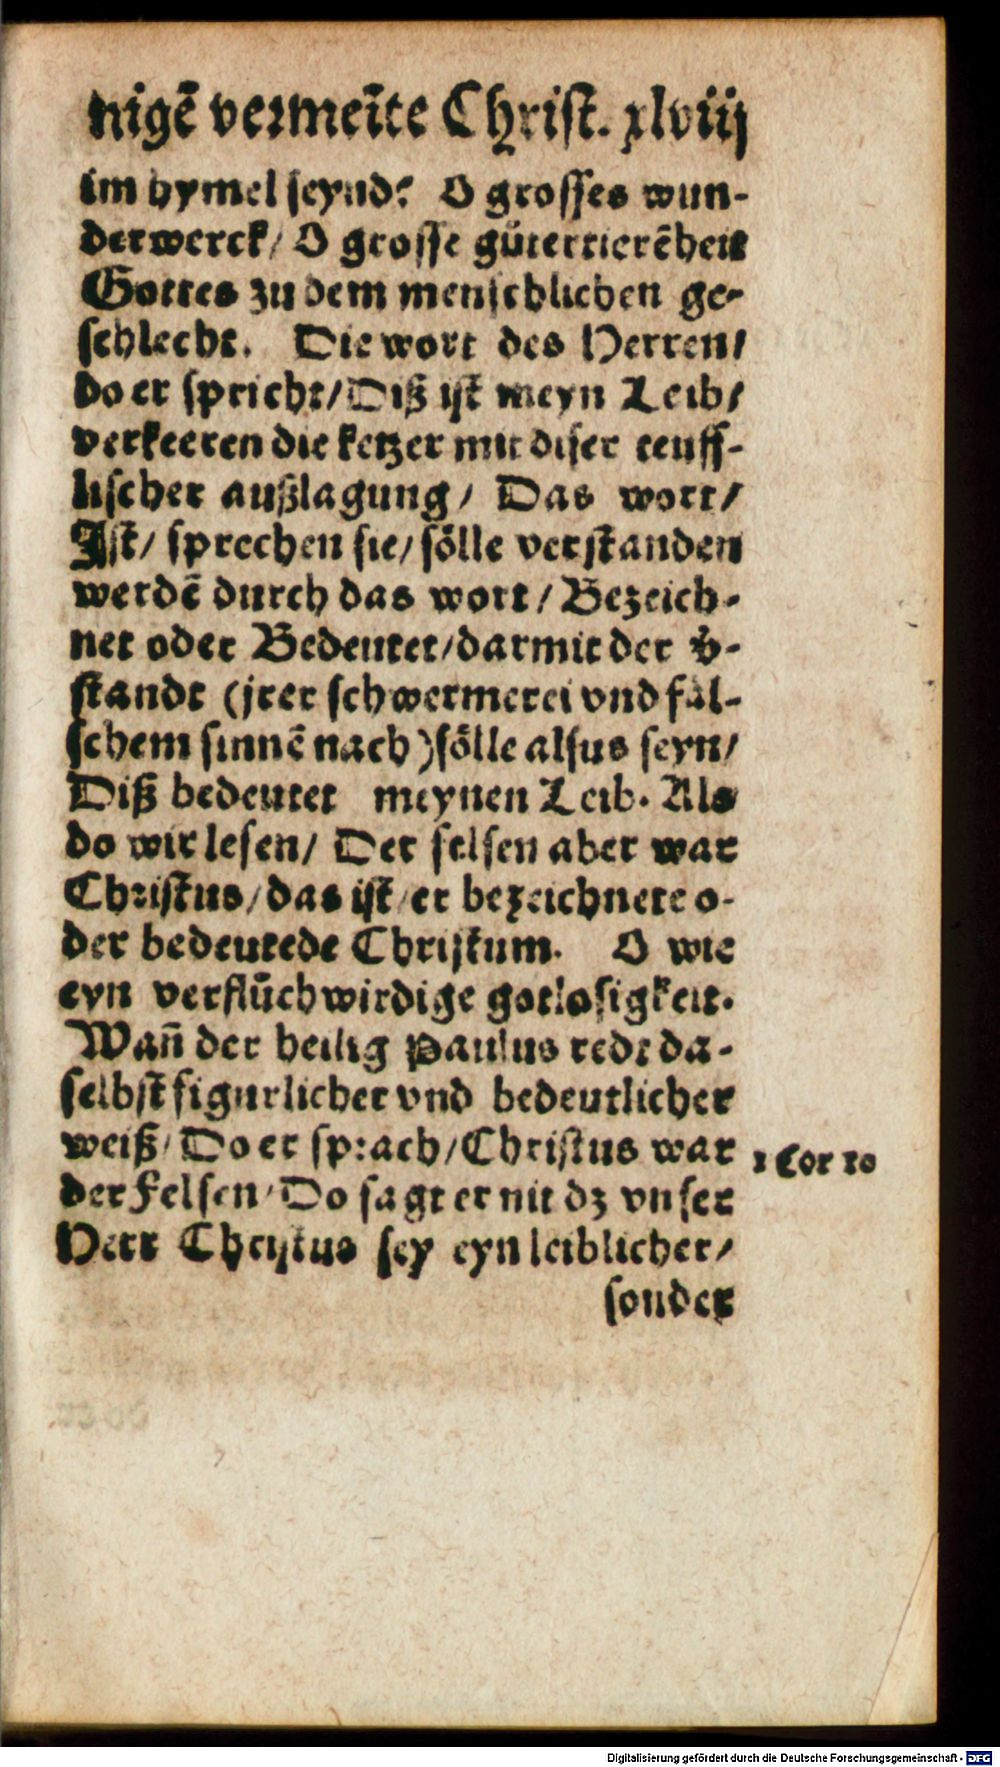 nigẽ vermeĩte Christ. xlviij
im hymel seynd? O grosses wun-
derwerck/ O grosse gůterrierẽheit
Gottes zu dem menschlichen ge-
schlecht. Die wort des Herren/
do er spricht/ Diß ist meyn Leib/
verkeeren die ketzer mit diser teuff-
lischer außlagung/ Das wort/
Ist/ sprechen sie/ sölle verstanden
werdẽ durch das wort/ Bezeich-
net oder Bedeutet/ darmit der v̊-
standt (jrer schwermerei vnd fal-
schem sinnẽ nach) sölle alsus seyn/
Diß bedeutet meynen Leib. Als
do wir lesen/ Der felsen aber war
Christus/ das ist/ er bezeichnete o-
der bedeutede Christum. O wie
eyn verflůchwirdige gotlosigkeit.
Wañ der heilig Paulus redt da-
selbst figurlicher vnd bedeutlicher
weiß/ Do er sprach/ Christus war
der Felsen/ Do sagt er nit dz vnser
Herr Christus sey eyn leiblicher/
sonder
1 Cor 10
Digitalisierung gefördert durch die Deutsche Forschungsgemeinschaft - DFG